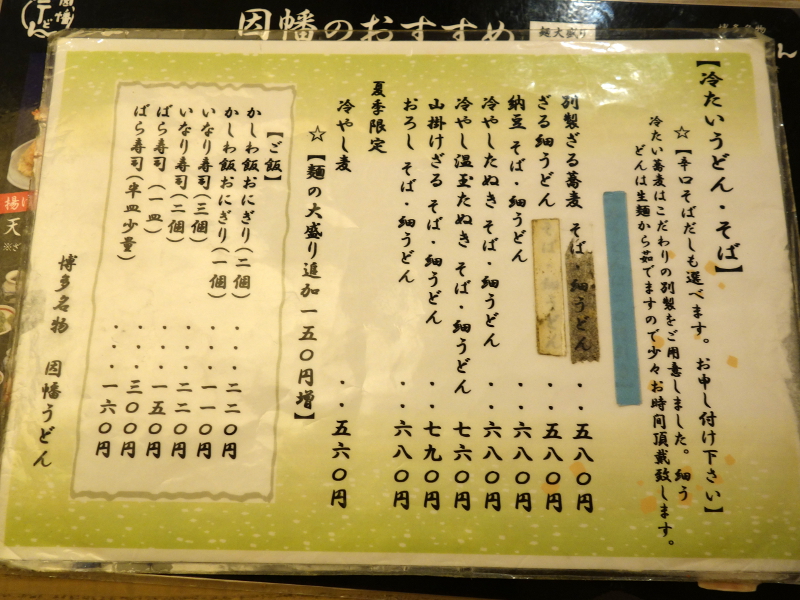 因幡のおすすめ
麺大盛り
【冷たいうどん・そば】
☆【辛口そばだしも選べます。お申し付け下さい】
冷たい蕎麦はこだわりの別製をご用意しました。細う
どんは生麺から茹でますので少々お時間頂戴致します。
別製ざる蕎麦 そば・細うどん ・・五八〇円
ざる細うどん ・・五八〇円
納豆 そば・細うどん ・・六八〇円
冷やしたぬき そば・細うどん ・・六八〇円
冷やし温玉たぬき そば・細うどん 七六〇円
山掛けざる そば・細うどん ・・七九〇円
おろし そば・細うどん ・・六八〇円
夏季限定
冷やし麦 ・・五六〇円
☆【麺の大盛り追加一五〇円増】
【ご飯】
かしわ飯おにぎり(二個) ・・・二二〇円
かしわ飯おにぎり(一個) ・・・一一〇円
いなり寿司(三個) ・・・二二〇円
いなり寿司(二個) ・・・一五〇円
ばら寿司(一皿) ・・・三〇〇円
ばら寿司(半皿少量) ・・・一六〇円
博多名物 因幡うどん